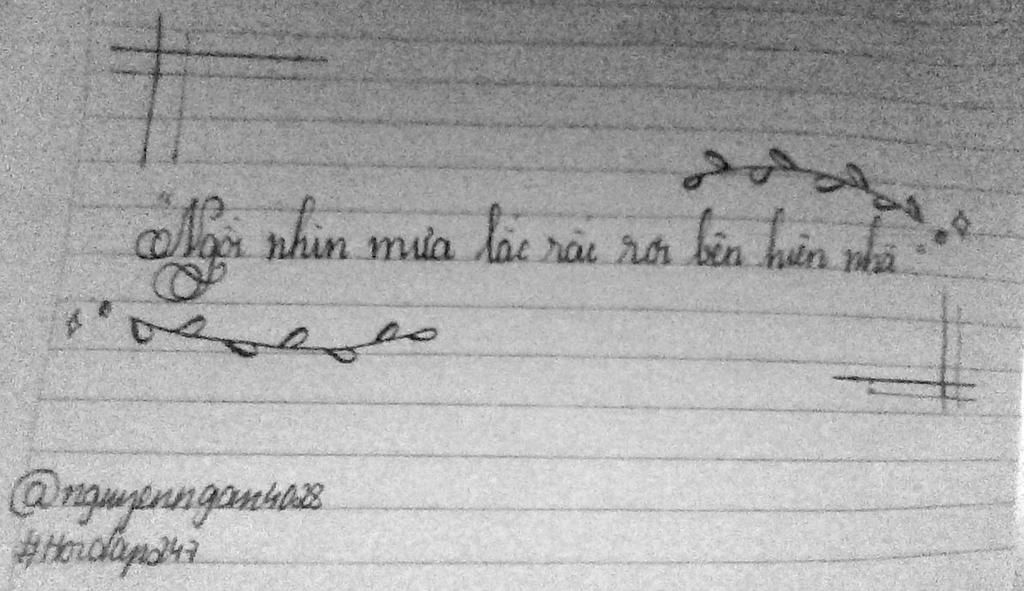 "Ngồi nhìn mưa lắc rắc rơi bên hiên nhà"
@nguyenngan4028
#Hoidap247